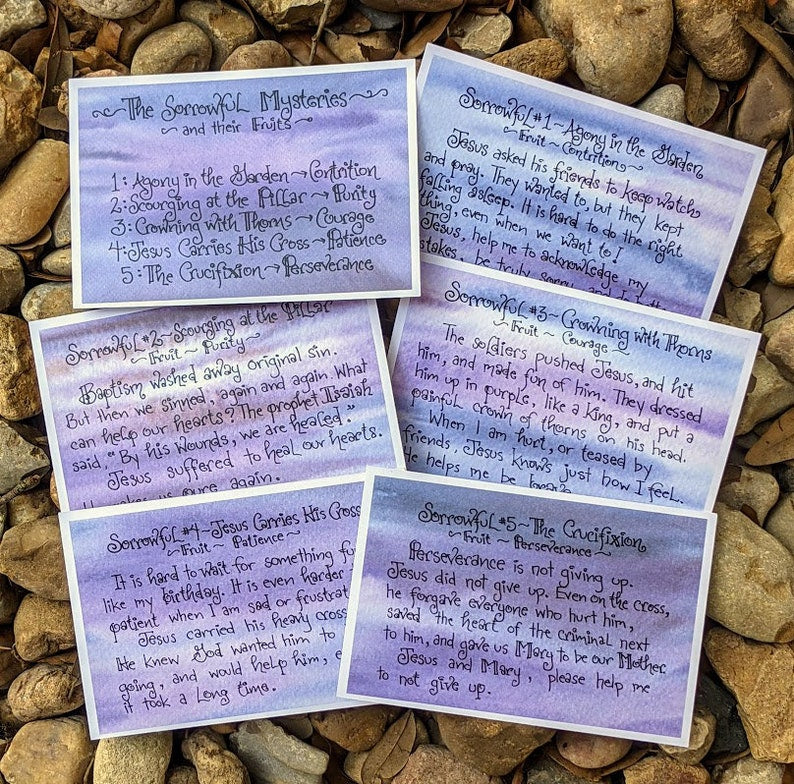 The Sorrowful Mysteries
~ and their Fruits ~
1: Agony in the Garden → Contrition
2: Scourging at the Pillar → Purity
3: Crowning with Thorns → Courage
4: Jesus Carries His Cross → Patience
5: The Crucifixion → Perseverance
Sorrowful #1 ~ Agony in the Garden
~ Fruit ~ Contrition ~
Jesus asked his friends to keep watch
and pray. They wanted to, but they kept
falling asleep. It is hard to do the right
thing, even when we want to!
Jesus, help me to acknowledge my
stakes, be truly sorry, and
Sorrowful #2 ~ Scourging at the Pillar
~ Fruit ~ Purity ~
Baptism washed away original sin.
But then we sinned, again and again. What
can help our hearts? The prophet Isaiah
said, "By his wounds, we are healed."
Jesus suffered to heal our hearts.
pure again.
Sorrowful #3 ~ Crowning with Thorns
~ Fruit ~ Courage ~
The soldiers pushed Jesus, and hit
him, and made fun of him. They dressed
him up in purple, like a king, and put a
painful crown of thorns on his head.
When I am hurt, or teased by
friends, Jesus knows just how I feel.
He helps me be
Sorrowful #4 ~ Jesus Carries His Cross
~ Fruit ~ Patience ~
It is hard to wait for something fu
like my birthday. It is even harder
patient when I am sad or frustrat
Jesus carried his heavy cross
He knew God wanted him to
going, and would help him, e
it took a long time.
Sorrowful #5 ~ The Crucifixion
~ Fruit ~ Perseverance ~
Perseverance is not giving up.
Jesus did not give up. Even on the cross,
he forgave everyone who hurt him,
saved the heart of the criminal next
to him, and gave us Mary to be our Mother.
Jesus and Mary, please help me
to not give up.